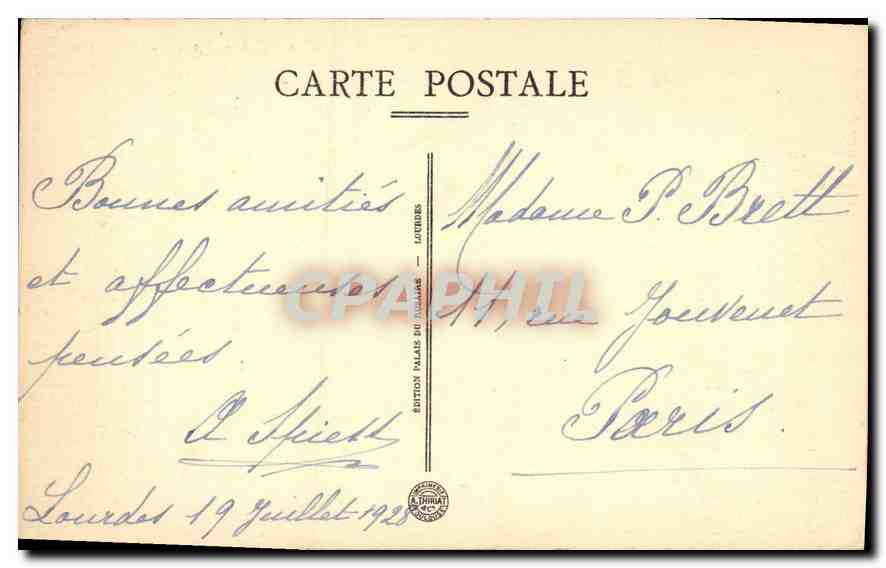 CARTE POSTALE
Bonnes amitiés
et affectueuses
pensées.
Lourdes 19 Juillet 1928
ÉDITION PALAIS DU ROSAIRE — LOURDES
Madame P. Brett
11, rue Jouvenet
Paris.
IMPRIMERIES
A. THIRIAT
& Cie
TOULOUSE
CPAPHIL